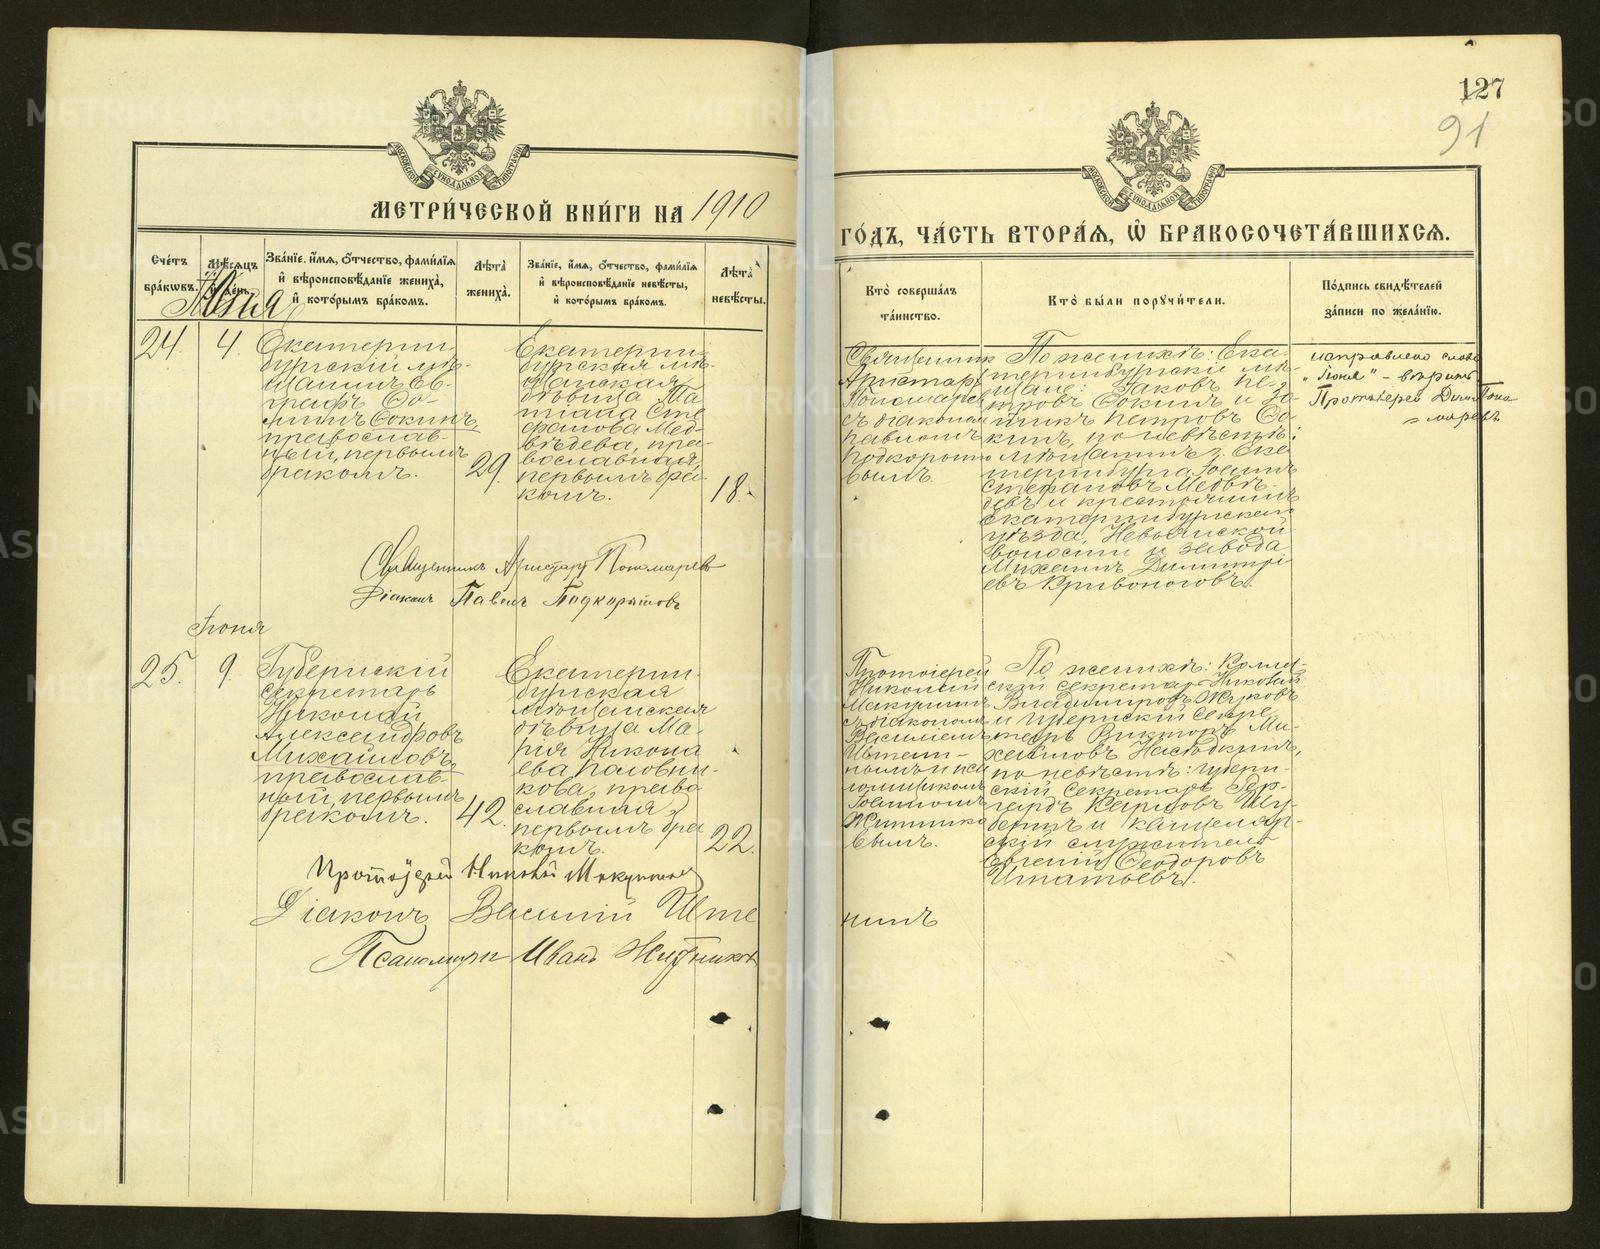 127
91
МЕТРИ́ЧЕСКОЙ КНИ́ГИ НА 1910
ГО́ДЪ, ЧА́СТЬ ВТОРА́Я, Ѡ҆ БРАКОСОЧЕТА́ВШИХСЯ.
Сче́тъ бра́кѡвъ.
Мѣ́сяцъ и҆ де́нь.
Зва́нїе, и҆́мя, ѻ҆́тчество, фами́лїя
и҆ вѣроисповѣ́данїе жениха̀,
и҆ кото́рымъ бра́комъ.
Лѣ́та̀ жениха̀.
Зва́нїе, и҆́мя, ѻ҆́тчество, фами́лїя
и҆ вѣроисповѣ́данїе невѣ́сты,
и҆ кото́рымъ бра́комъ.
Лѣ́та̀ невѣ́сты.
Кто̀ соверша́лъ та́инство.
Кто̀ бы́ли поручи́тели.
По́дпись свидѣ́телей
за́писи по жела́нїю.
Іюня
24.
4.
Екатерин-
бургскій мѣ-
щанинъ Ев-
графъ Ѳо-
минъ Сокинъ,
православ-
ный, первымъ
бракомъ.
29.
Екатерин-
бургская мѣ-
щанская
дѣвица Та-
тіана Сте
фанова Мед-
вѣдева, пра-
вославная,
первымъ бра-
комъ.
18.
Священникъ
Аристархъ
Пономаревъ
съ діакономъ
Павломъ
Подкорыто
вымъ.
По женихѣ: Ека-
теринбургскіе мѣ-
щане: Іаковъ Пе-
тровъ Сокинъ и За-
Петровъ Со
кинъ, по невѣстѣ:
мѣщанинъ г. Ека
теринбурга Іоаннъ
Стефановъ Медвѣ-
девъ и крестьянинъ
Екатеринбургскаго
уѣзда, Невьянской
волости и завода
Михаилъ Димитрі
евъ Кривоноговъ.
исправлено слово
"Іюня" - вѣрно
Протоіерей Дим. Поно
маревъ
Священникъ Аристархъ Пономаревъ
Діаконъ Павелъ Подкорытовъ
Іюня
25.
9.
Губернскій
секретарь
Николай
Александровъ
Михайловъ,
православ-
ный, первымъ
бракомъ.
42.
Екатерин-
бургская
мѣщанская
дѣвица Ма-
рія Никола
ева Половни-
кова, право
славная,
первымъ бра
комъ.
22.
Протоіерей
Николай
Макушинъ
съ діакономъ
Василіемъ
Иштени-
нымъ и пса
ломщикомъ
Іоанномъ
Житнико
вымъ.
По женихѣ: Колле-
скій секретарь Николай
Владиміровъ Жуковъ
и губернскій секре-
тарь Викторъ Ми-
хайловъ Насѣдкинъ,
по невѣстѣ: губерн-
скій секретарь Гер-
гардъ Карловъ Шу-
бертъ и канцеляр-
скій служитель
Евгеній Ѳеодоровъ
Игнатьевъ.
Протоіерей Николай Макушинъ
Діаконъ Василій Иште
нинъ
Псаломщикъ Иванъ Житниковъ
METRIKI.GASO-URAL.RU